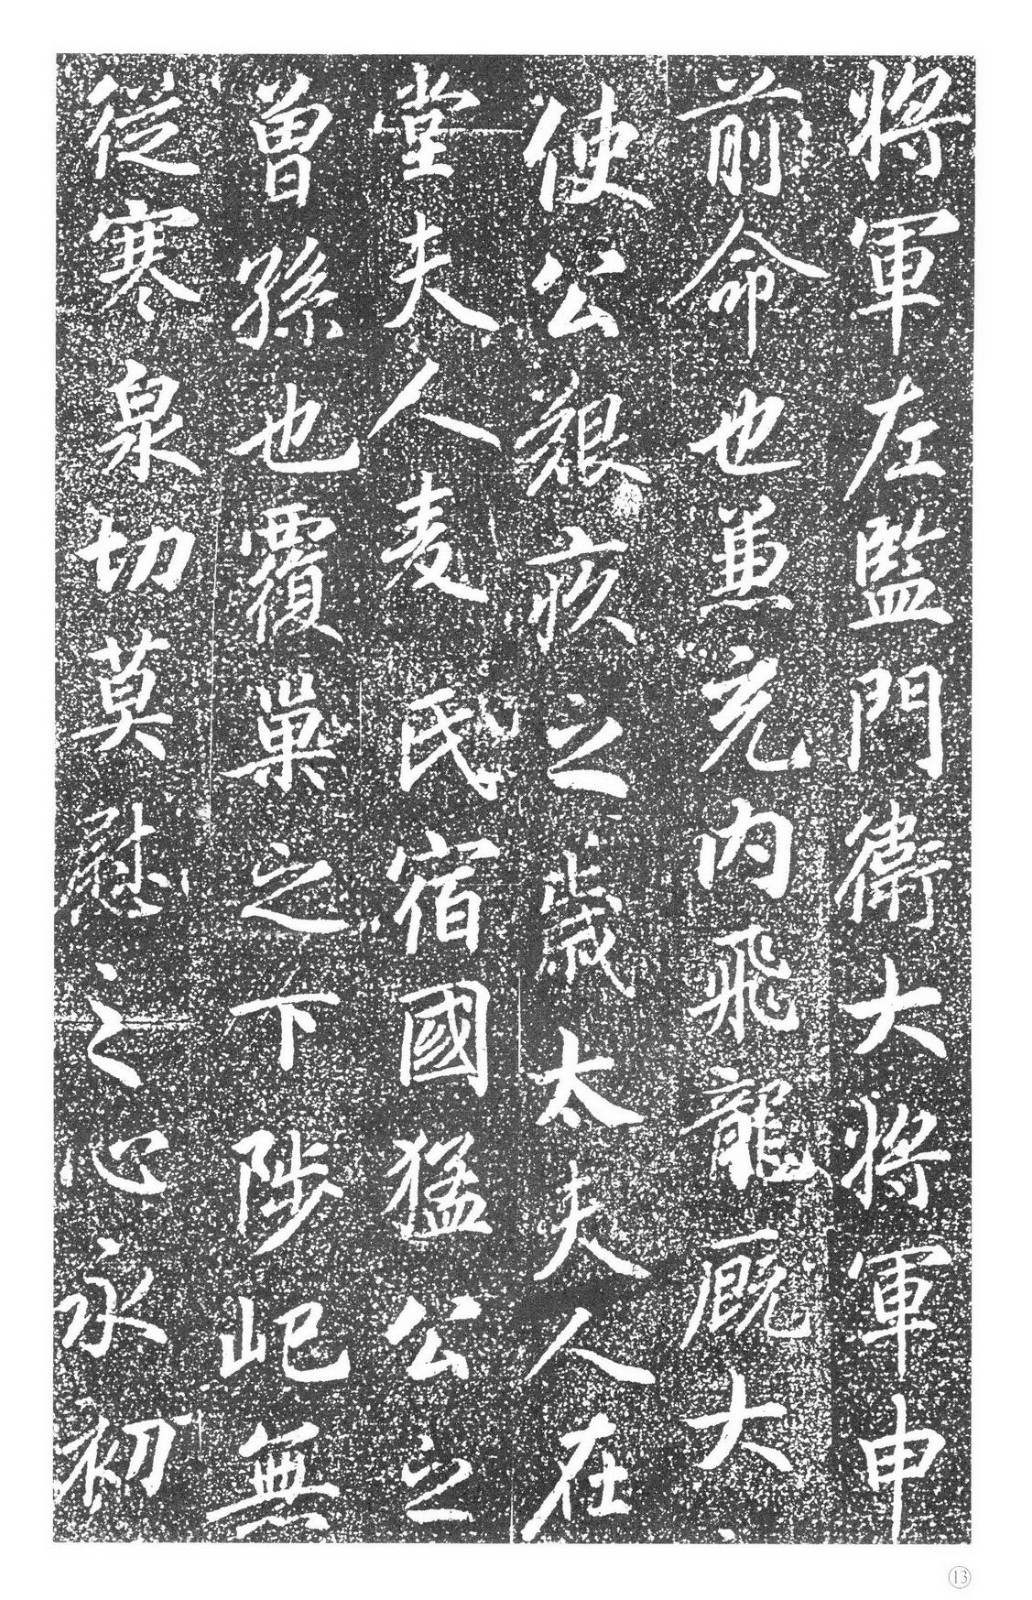 將軍左監門衛大將軍申
前命也兼充內飛龍廐大
使公艱疚之歲太夫人在
堂夫人麦氏宿國猛公之
曾孫也覆巢之下陟屺無
從寒泉切莫慰之心永初
13